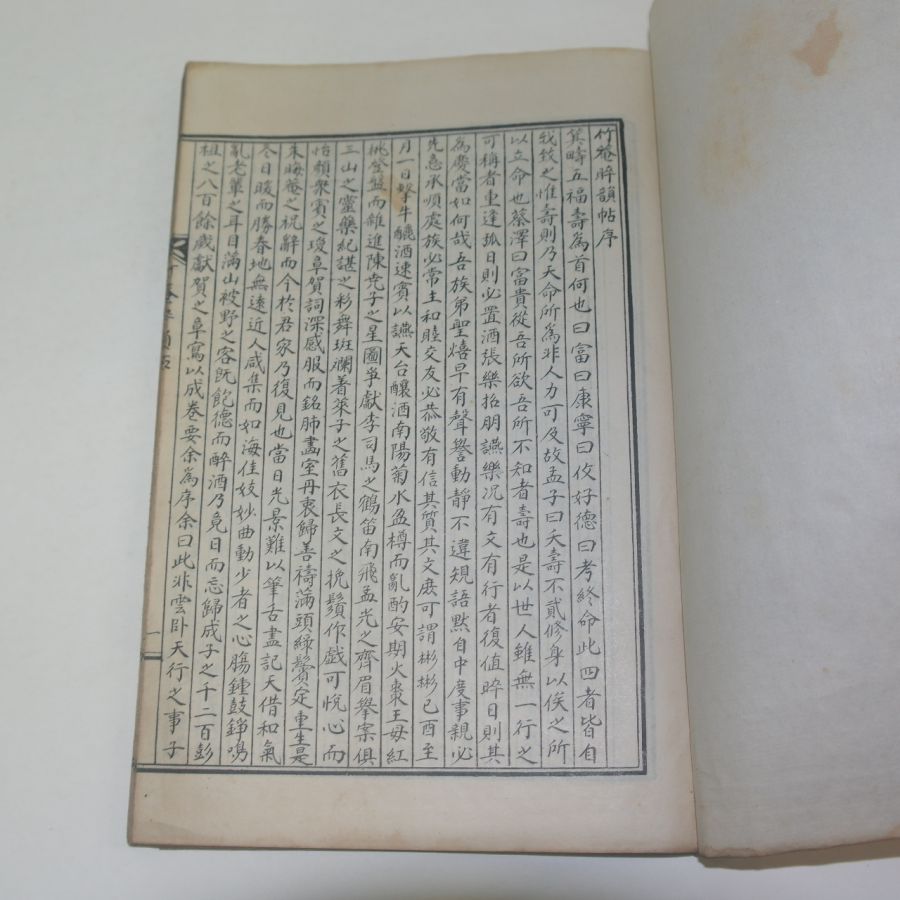 竹菴晬韻帖序
箕疇五福壽為首何也曰富曰康寧曰攸好德曰考終命此四者皆自
我致之惟壽則乃天命所為非人力可及故孟子曰夭壽不貳修身以俟之所
以立命也蔡澤曰富貴從吾所欲吾所不知者壽也是以世人雖無一行之
可稱者重逢弧日則必置酒張樂招朋讌樂况有文有行者復值晬日則其
為慶當如何哉吾族弟聖熺早有聲譽動靜不違規語默自中度事親必
先意承順處族必常主和睦交友必恭敬有信其質其文庶可謂彬彬已酉至
月一日擊牛釃酒速賓以讌天台釀酒南陽菊水盈樽而亂酌安期火棗王母紅
桃登盤而雜進陳尭子之星圖爭獻李司馬之鶴笛南飛孟光之齊眉擧案俱
三山之靈藥紀諶之彩舞斑斕着萊子之舊衣長文之挽鬚作戲可悅心而
怡顏衆賓之瓊阜賀詞深感服而銘肺畵室丹衷歸善禱滿頭綠鬢定重生是
朱晦菴之祝辭而今於君家乃復見也當日光景難以筆舌盡記天借和氣
冬日暖而勝春地無遠近人咸集而如海佳妓妙曲動少者之心膓鍾鼓錚鳴
亂老輩之耳目滿山被野之客旣飽德而醉酒乃竟日而忘歸成子之千二百彭
祖之八百餘歲獻賀之阜寫以成卷要余為序余曰此非雲卧天行之事子
一